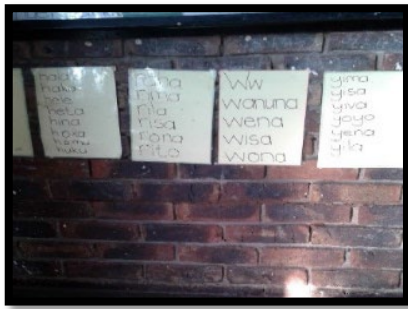 hala
haha
hele
heta
hina
hoka
huku
rona
rima
rila
risa
rona
rito
Ww
wanuna
wena
wisa
wona
yima
yisa
yiva
yoyo
yena